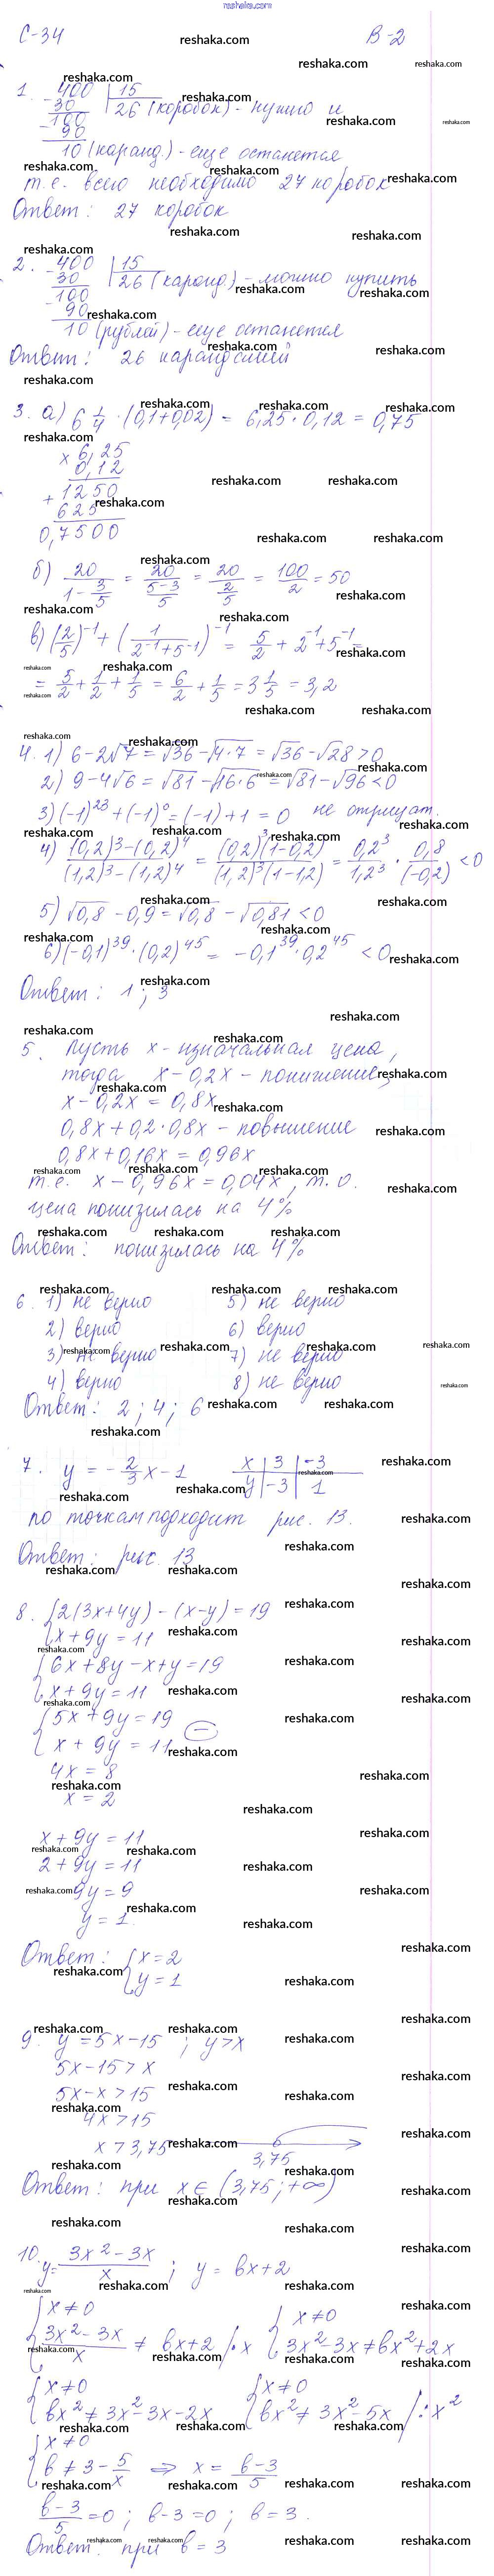 reshaka.com
С-34 В-2
1. 400 | 15
30 26 (коробок) - нужно и
100
90
10 (каранд.) - еще останется
т.е. всего необходимо 27 коробок
Ответ: 27 коробок
2. 400 | 15
30 26 (каранд.) - можно купить
100
90
10 (рублей) - еще останется
Ответ: 26 карандашей
3. а) 6 1/4 · (0,1+0,02) = 6,25 · 0,12 = 0,75
× 6,25
0,12
+ 1250
625
0,7500
б) 20/(1 - 3/5) = 20/((5-3)/5) = 20/(2/5) = 100/2 = 50
в) (2/5)^-1 + (1/(2^-1+5^-1))^-1 = 5/2 + 2^-1 + 5^-1 =
= 5/2 + 1/2 + 1/5 = 6/2 + 1/5 = 3 1/5 = 3,2
4. 1) 6-2√7 = √36 - √4·7 = √36 - √28 > 0
2) 9-4√6 = √81 - √16·6 = √81 - √96 < 0
3) (-1)^23 + (-1)^0 = (-1)+1 = 0 не отрицат.
4) ((0,2)^3-(0,2)^4)/((1,2)^3-(1,2)^4) = ((0,2)^3(1-0,2))/((1,2)^3(1-1,2)) = 0,2^3/1,2^3 · 0,8/(-0,2) < 0
5) √0,8 - 0,9 = √0,8 - √0,81 < 0
6) (-0,1)^39 · (0,2)^45 = -0,1^39 · 0,2^45 < 0
Ответ: 1; 3
5. Пусть x - изначальная цена,
тогда x - 0,2x - понижение,
x - 0,2x = 0,8x
0,8x + 0,2 · 0,8x - повышение
0,8x + 0,16x = 0,96x
т.е. x - 0,96x = 0,04x, т.о.
цена понизилась на 4%
Ответ: понизилась на 4%
6. 1) не верно 5) не верно
2) верно 6) верно
3) не верно 7) не верно
4) верно 8) не верно
Ответ: 2; 4; 6
7. y = -2/3 x - 1
x | 3 | -3
y | -3 | 1
по точкам подходит рис. 13.
Ответ: рис. 13
8. { 2(3x+4y) - (x-y) = 19
x + 9y = 11
{ 6x + 8y - x + y = 19
x + 9y = 11
{ 5x + 9y = 19
x + 9y = 11 (-)
4x = 8
x = 2
x + 9y = 11
2 + 9y = 11
9y = 9
y = 1.
Ответ: { x = 2
y = 1
9. y = 5x - 15 ; y > x
5x - 15 > x
5x - x > 15
4x > 15
x > 3,75
3,75
Ответ: при x ∈ (3,75; +∞)
10. y = (3x^2 - 3x)/x ; y = bx + 2
{ x ≠ 0 { x ≠ 0
(3x^2 - 3x)/x ≠ bx + 2 /·x 3x^2 - 3x ≠ bx^2 + 2x
{ x ≠ 0 { x ≠ 0
bx^2 ≠ 3x^2 - 3x - 2x bx^2 ≠ 3x^2 - 5x /: x^2
{ x ≠ 0
b ≠ 3 - 5/x ⇒ x = (b-3)/5
(b-3)/5 = 0 ; b - 3 = 0 ; b = 3.
Ответ: при b = 3